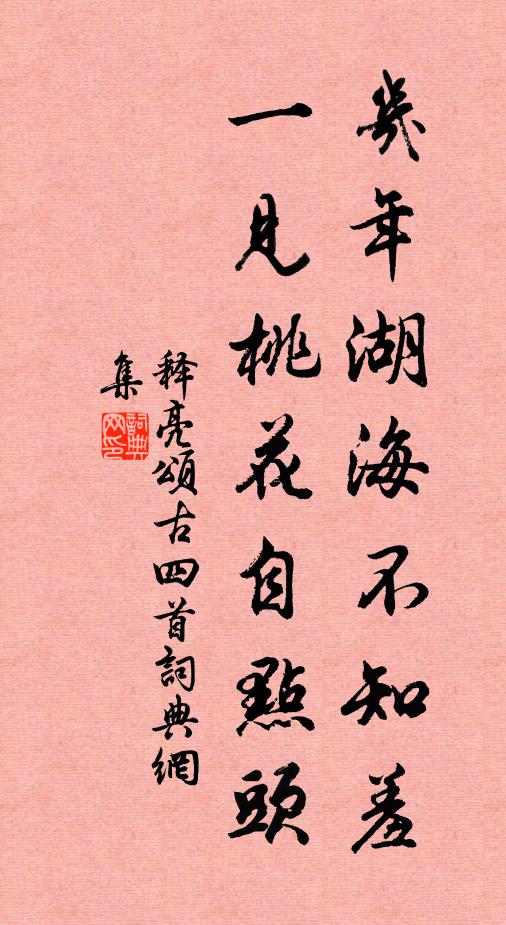 幾年湖海不知羞
一見桃花自點頭
释亮頌古四首詞典網
集
詞典网印